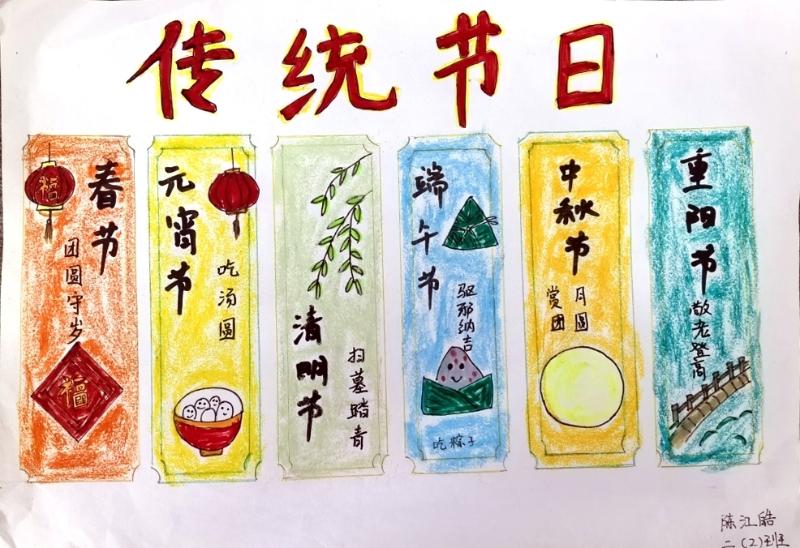 传统节日
春节
团圆守岁
福
福
元宵节
吃汤圆
清明节
扫墓踏青
端午节
驱邪纳吉
吃粽子
中秋节
月圆
赏团
重阳节
敬老登高
陈江皓
二(2)班